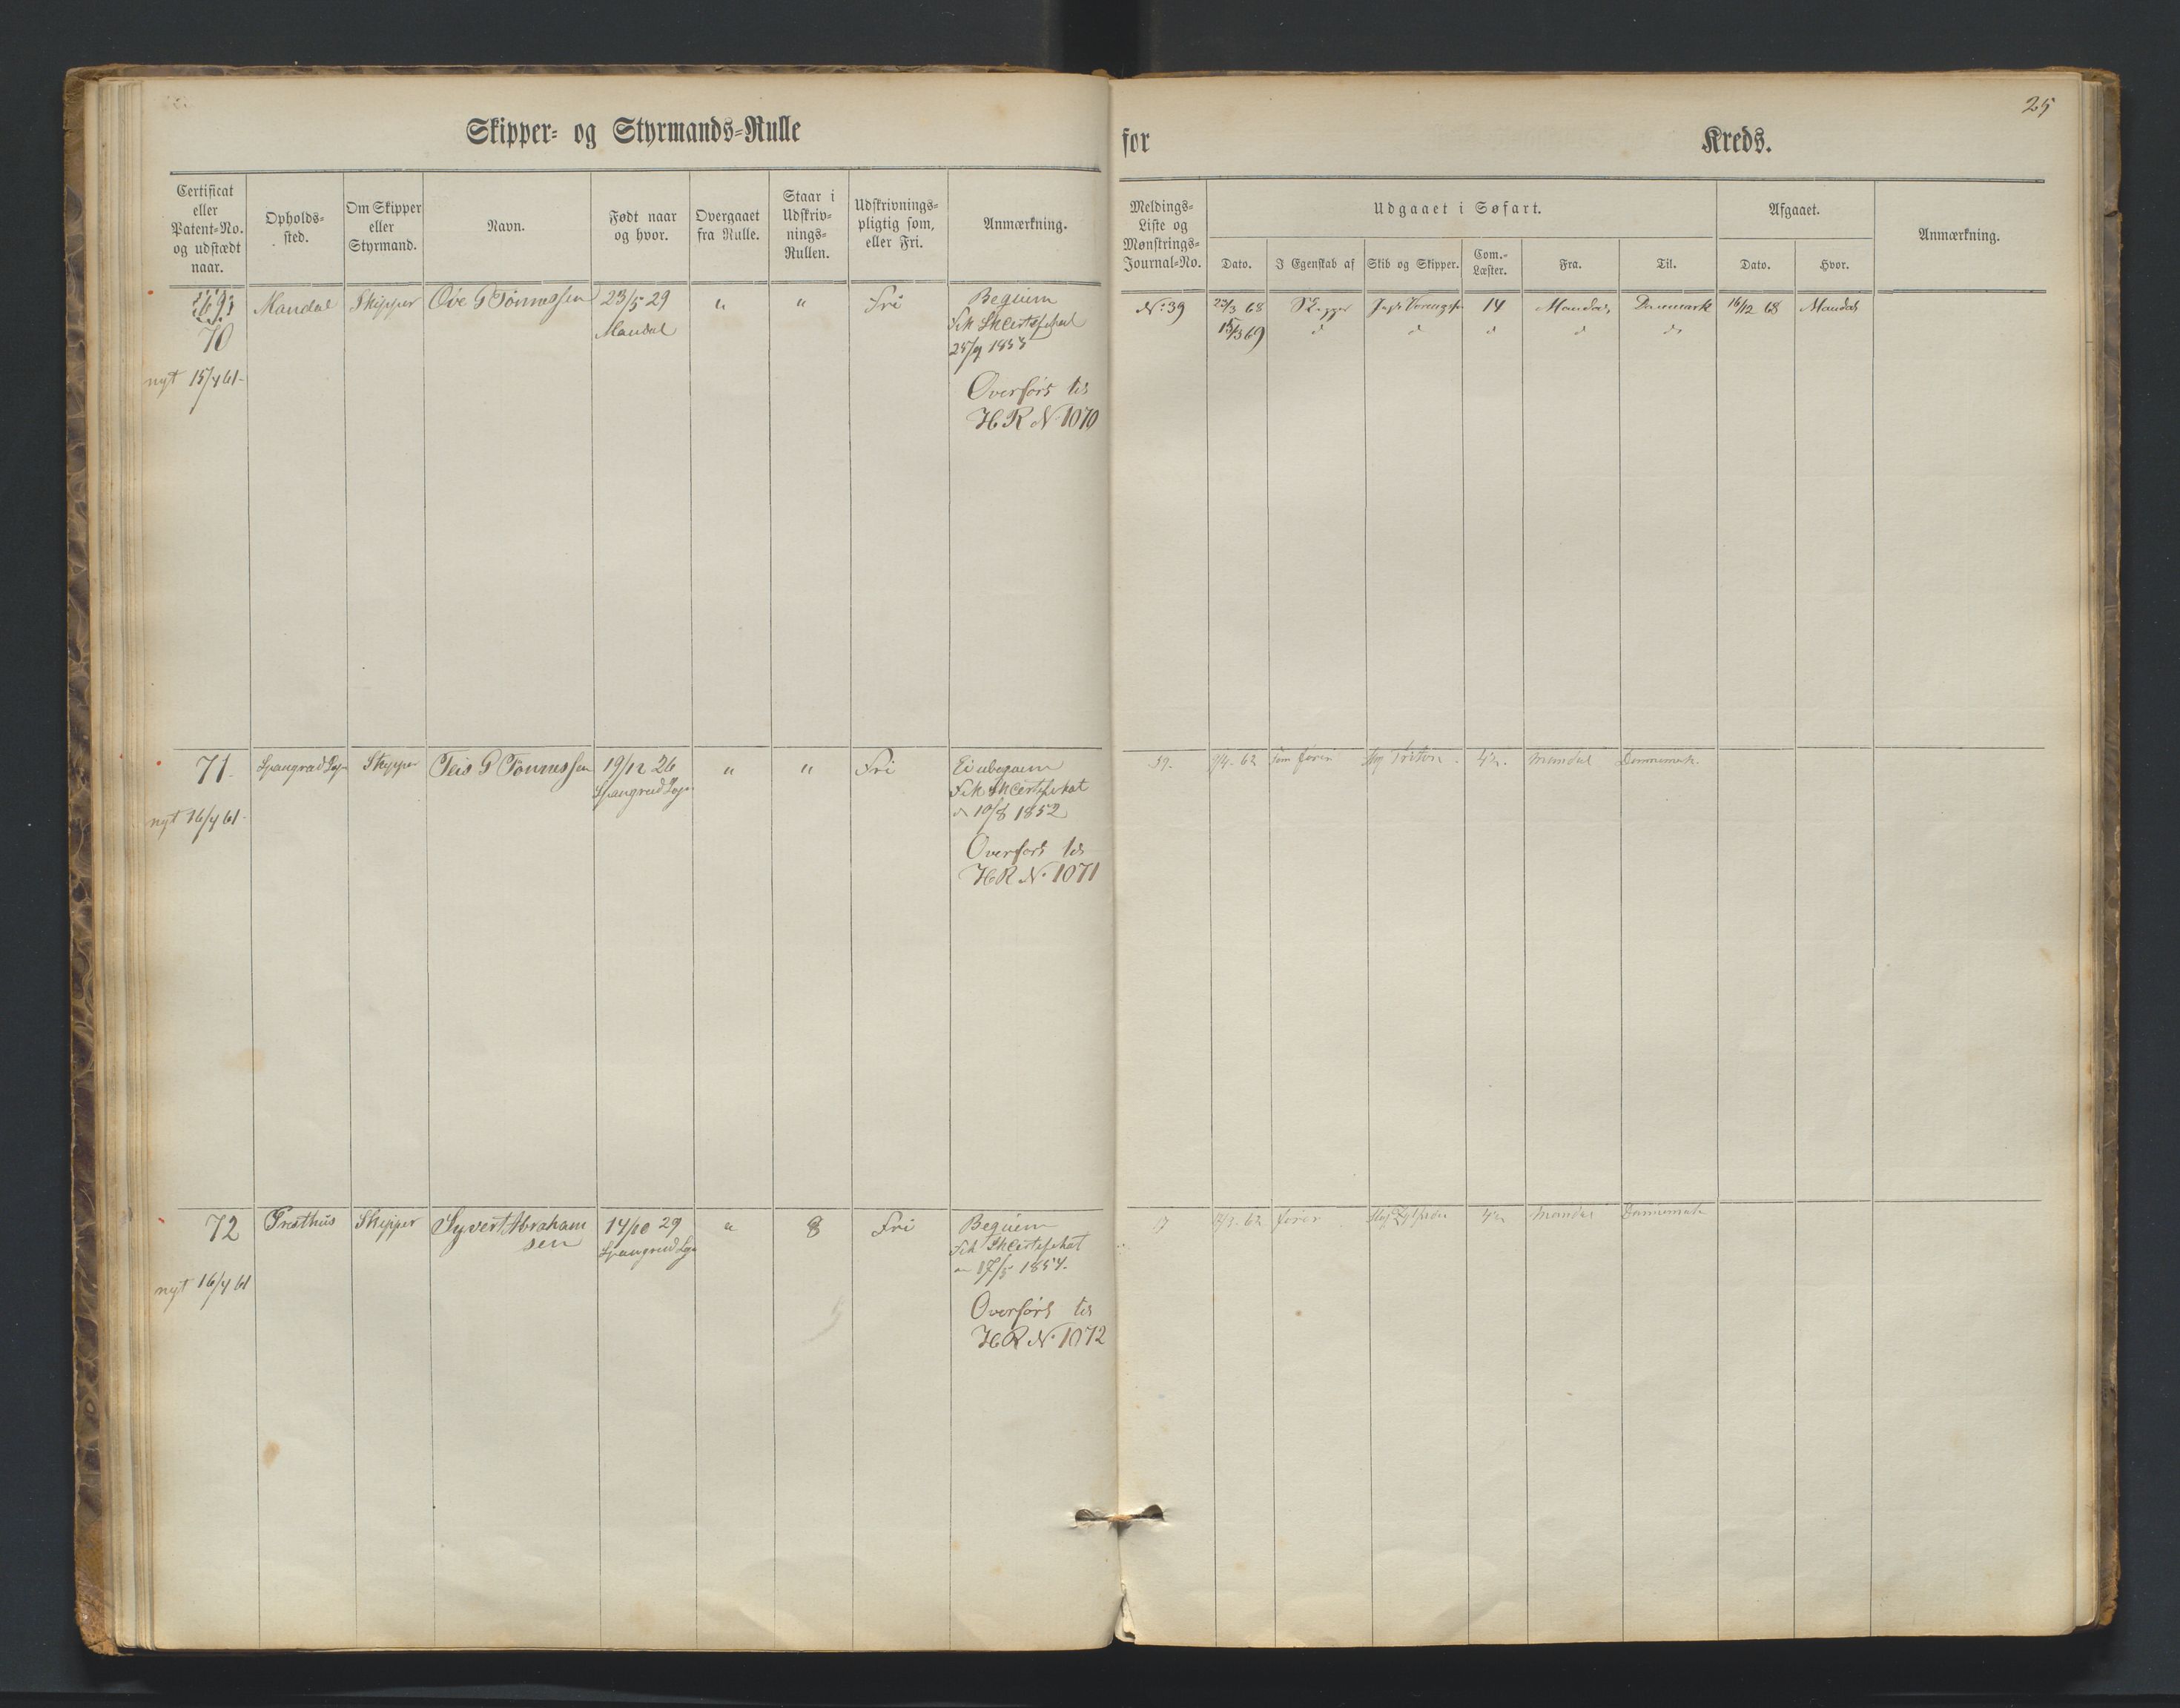 25
Skipper- og Styrmands-Rulle
for Kreds.
Certificat eller Patent-No. og udstædt naar.
Opholds-sted.
Om Skipper eller Styrmand.
Navn.
Født naar og hvor.
Overgaaet fra Rulle.
Staar i Udskriv-nings-Rullen.
Udskrivnings-pligtig som, eller Fri.
Anmærkning.
Meldings-Liste og Mønstrings-Journal-No.
Udgaaet i Søfart.
Dato.
I Egenskab af
Skib og Skipper.
Com.-Læster.
Fra.
Til.
Afgaaet.
Dato.
Hvor.
Anmærkning.
69
70
nyt 15/4 61-
Mandal
Skipper
Ove G Tönnessen
23/5 29
Mandal
"
"
Fri
Beqüem
Fik SkCertifikat
25/9 1853
Overført til
HR N 1070
No 39
23/3 68
Skipper
14
Mandal
Danmark
16/12 68
Mandal
15/3 69
d
d
d
d
do
71.
nyt 16/4 61-
Skipper
Teis G Tönnessen
19/12 26
"
"
Fri
Ei ubeqüem
Fik SkCertifikat
d 10/8 1852
Overført til
HR No 1071
39.
2/4- 62
som fører
Slup Triton.
4 1/2.
Mandal
Dannemark.
72
nyt 16/4 61
Præsthus
Skipper
Syvert Abraham
sen
14/10 29
"
8
Fri
Beqüem
Fik SkCertifikat
17/5 1854.
Overført til
HR No 1072
17
fører
4 1/2
Mandal
Dannemark